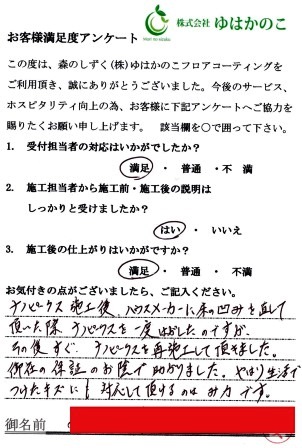 株式会社 ゆはかのこ
Mori no sizuku
お客様満足度アンケート
この度は、森のしずく(株)ゆはかのこフロアコーティングを
ご利用頂き、誠にありがとうございました。今後のサービス、
ホスピタリティ向上の為、お客様に下記アンケートへご協力を
賜りたくお願い申し上げます。 該当欄を○で囲って下さい。
1. 受付担当者の対応はいかがでしたか?
満足 ・ 普通 ・ 不 満
2. 施工担当者から施工前・施工後の説明は
しっかりと受けましたか?
はい ・ いいえ
3. 施工後の仕上がりはいかがですか?
満足 ・ 普通 ・ 不 満
お気付きの点がございましたら、ご記入ください。
ナノピークス施工後 ハウスメーカーに床の凹みを直して
頂いた際 ナノピークスを一度はがしたのですが
その後すぐ ナノピークスを再施工して頂きました。
の保証のお陰で助かりました。やはり生活で
つけたキズに 対応して頂けるのはみ力です。
御名前